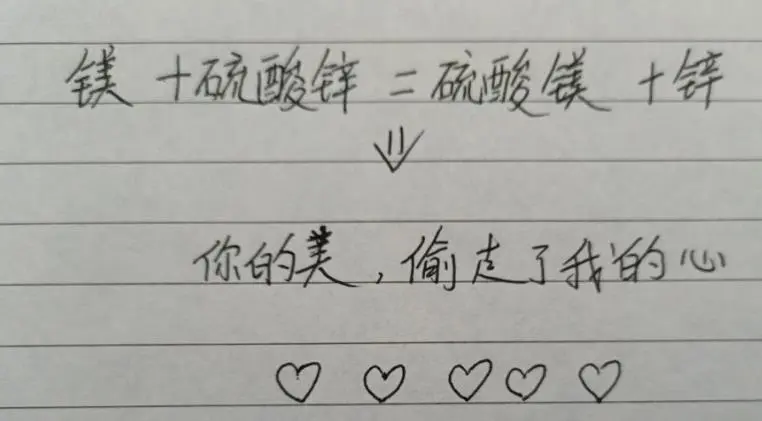 镁+硫酸锌=硫酸镁+锌
你的美,偷走了我的心